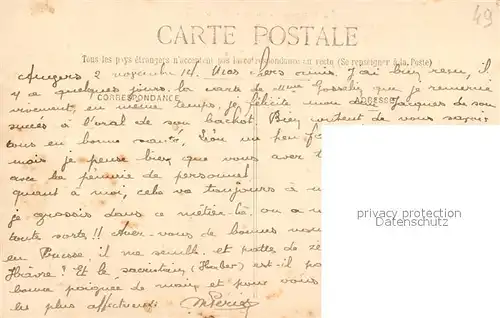 CARTE POSTALE
49
Tous les pays étrangers n'acceptent pas la correspondance au recto (Se renseigner à la Poste)
Angers 2 novembre 14. Mes chers amis. J'ai bien reçu, il
y a quelques jours, la carte de Mme Gosselin que je remercie
CORRESPONDANCE
ADRESSE
vivement, en même temps, je félicite mon ami Jacques de son
succès à l'oral de son bachot. Bien content de vous savoir
tous en bonne santé, Léon un peu
mais je pense bien que vous avez
avec la pénurie de personnel
quant à moi, cela va toujours à
je grossis dans ce métier-là, on a
toute sorte!! Avez-vous de bonnes
en Prusse, il me semble et
Hâvre? Et le sacristain (Huber) est-il
bonne poignée de main, et pour vous
les plus affectueux
privacy protection
Datenschutz